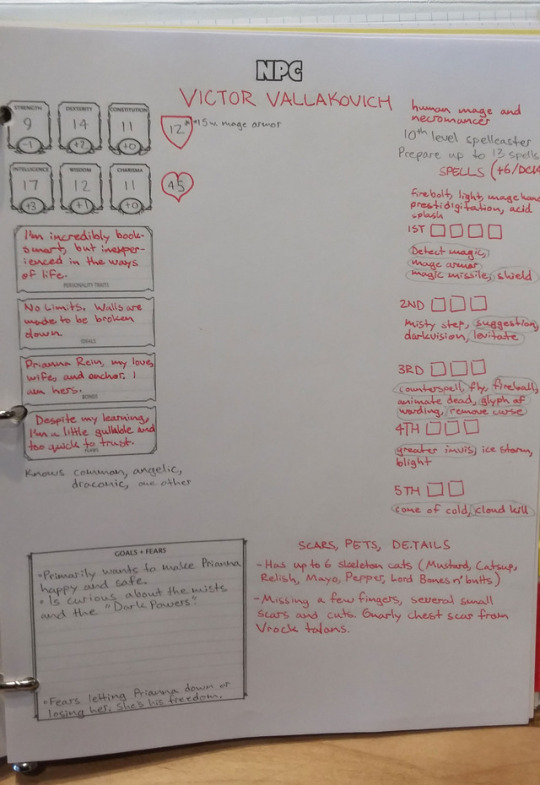 NPC
VICTOR VALLAKOVICH
STRENGTH
9
-1
DEXTERITY
14
+2
CONSTITUTION
11
+0
12* *15 w. mage armor
INTELLIGENCE
17
+3
WISDOM
12
+1
CHARISMA
11
+0
45
I'm incredibly book-
smart, but inexper-
ienced in the ways
of life.
PERSONALITY TRAITS
No Limits. Walls are
made to be broken
down.
IDEALS
Prianna Rein, my love,
wife, and anchor. I
am hers.
BONDS
Despite my learning,
I'm a little gullable and
too quick to trust.
FLAWS
Knows common, angelic,
draconic, one other
human mage and
necromancer
10th level spellcaster
Prepare up to 13 spells
SPELLS (+6/DC14
firebolt, light, mage hand
prestidigitation, acid
splash
1ST
Detect magic,
mage armor,
magic missile, shield
2ND
misty step, suggestion,
darkvision, levitate
3RD
counterspell, fly, fireball,
animate dead, glyph of
warding, remove curse
4TH
greater invis, ice storm,
blight
5TH
cone of cold, cloud kill
GOALS + FEARS
• Primarily wants to make Prianna
happy and safe.
• Is curious about the mists
and the "Dark Powers"
• Fears letting Prianna down or
losing her, she's his freedom.
SCARS, PETS, DETAILS
- Has up to 6 skeleton cats (Mustard, Catsup,
Relish, Mayo, Pepper, Lord Bones n' butts)
- Missing a few fingers, several small
scars and cuts. Gnarly chest scar from
Vrock talons.